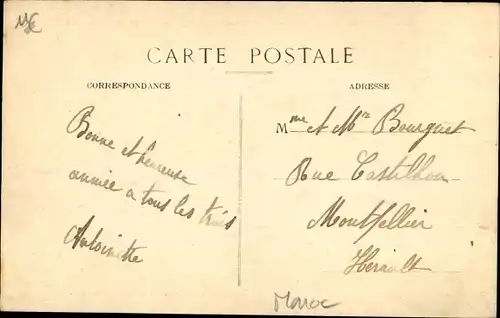 CARTE POSTALE
CORRESPONDANCE
Bonne et heureuse
année a tous les trois
Antoinette
ADRESSE
Mme et Mr Bourguet
Rue Castilhon
Montpellier
Hérault
Maroc